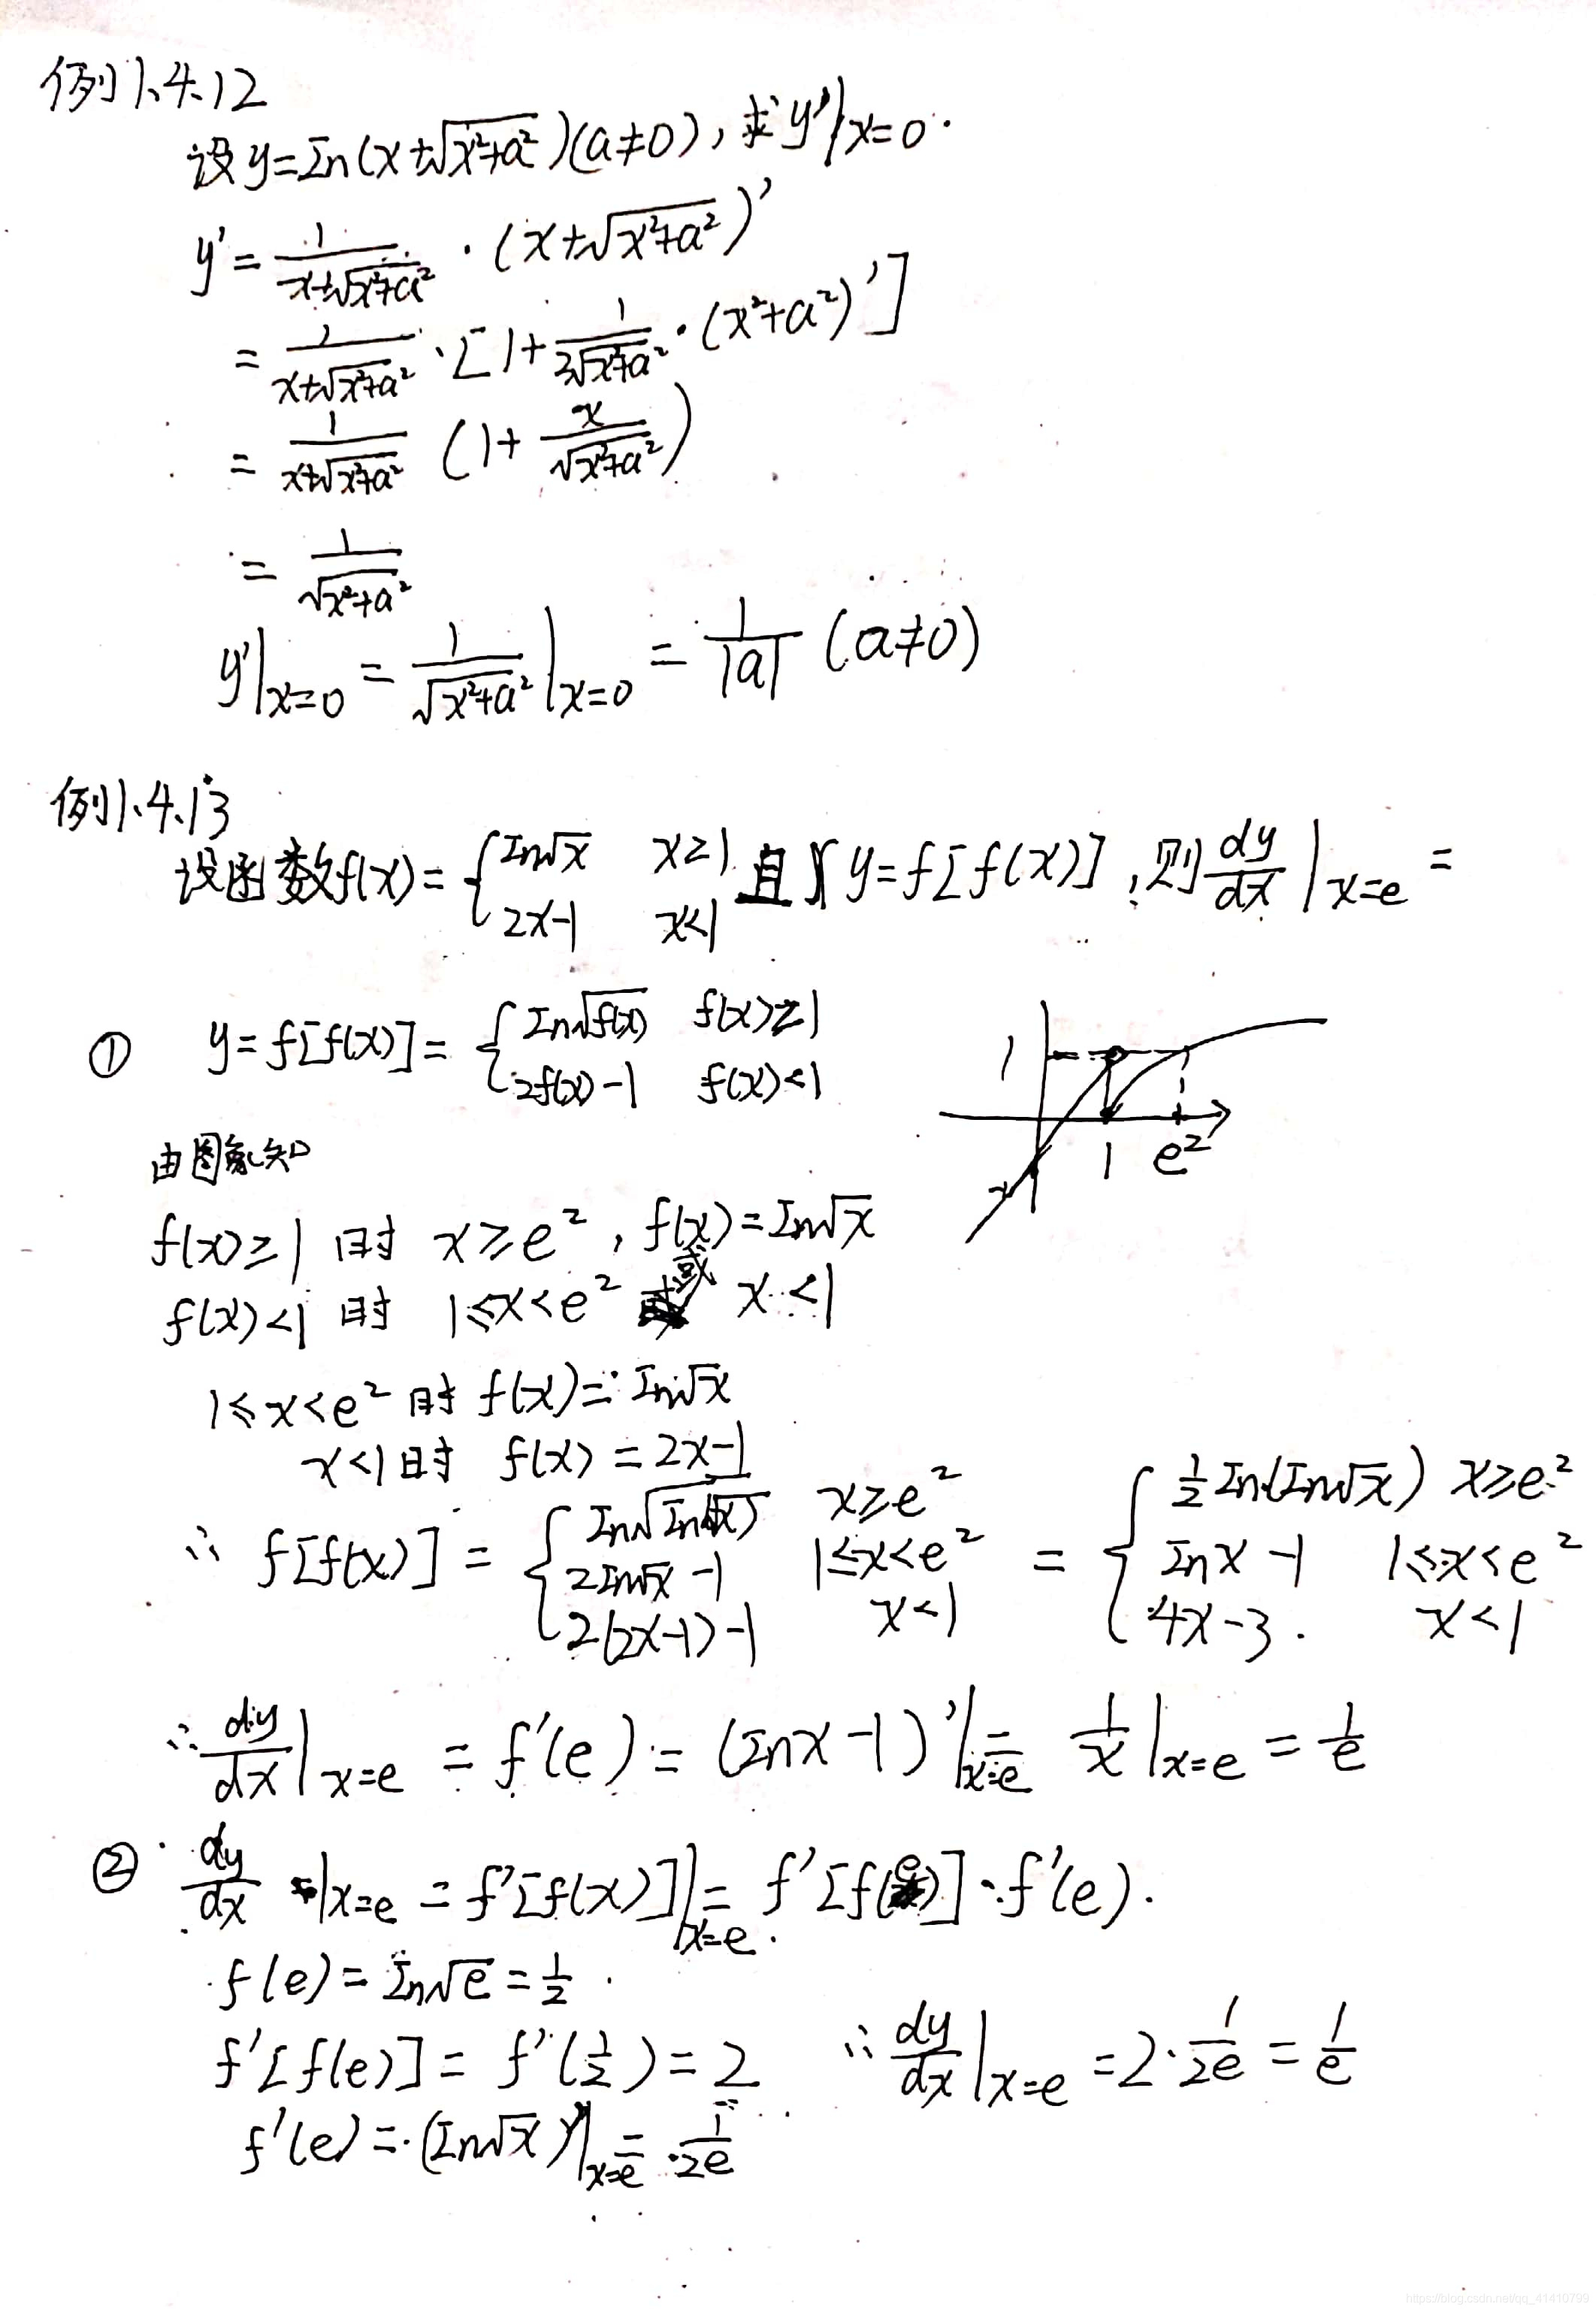 例1.4.12
设y=In(x+√(x²+a²))(a≠0), 求y'|x=0.
y'=1/(x+√(x²+a²))·(x+√(x²+a²))'
=1/(x+√(x²+a²))·[1+1/(2√(x²+a²))·(x²+a²)']
=1/(x+√(x²+a²))(1+x/√(x²+a²))
=1/√(x²+a²)
y'|x=0=1/√(x²+a²)|x=0=1/|a|(a≠0)
例1.4.13
设函数f(x)={In√x x≥1 2x-1 x<1 且 y=f[f(x)],则dy/dx|x=e=
① y=f[f(x)]={In√f(x) f(x)≥1 2f(x)-1 f(x)<1
1
1 e²
由图象知
f(x)≥1 时 x≥e², f(x)=In√x
f(x)<1 时 1≤x<e² 或 x<1
1≤x<e² 时 f(x)=In√x
x<1时 f(x)=2x-1
∴ f[f(x)]={In√(In√x) x≥e² 2In√x-1 1≤x<e² 2(2x-1)-1 x<1 ={1/2In(In√x) x≥e² Inx-1 1≤x<e² 4x-3. x<1
∴dy/dx|x=e=f'(e)=(Inx-1)'|x=e=1/x|x=e=1/e
② dy/dx|x=e=f'[f(x)]|x=e=f'[f(e)]·f'(e).
f(e)=In√e=1/2
f'[f(e)]=f'(1/2)=2 ∴dy/dx|x=e=2·1/2e=1/e
f'(e)=(In√x)'|x=e=1/2e
https://blog.csdn.net/qq_41410799